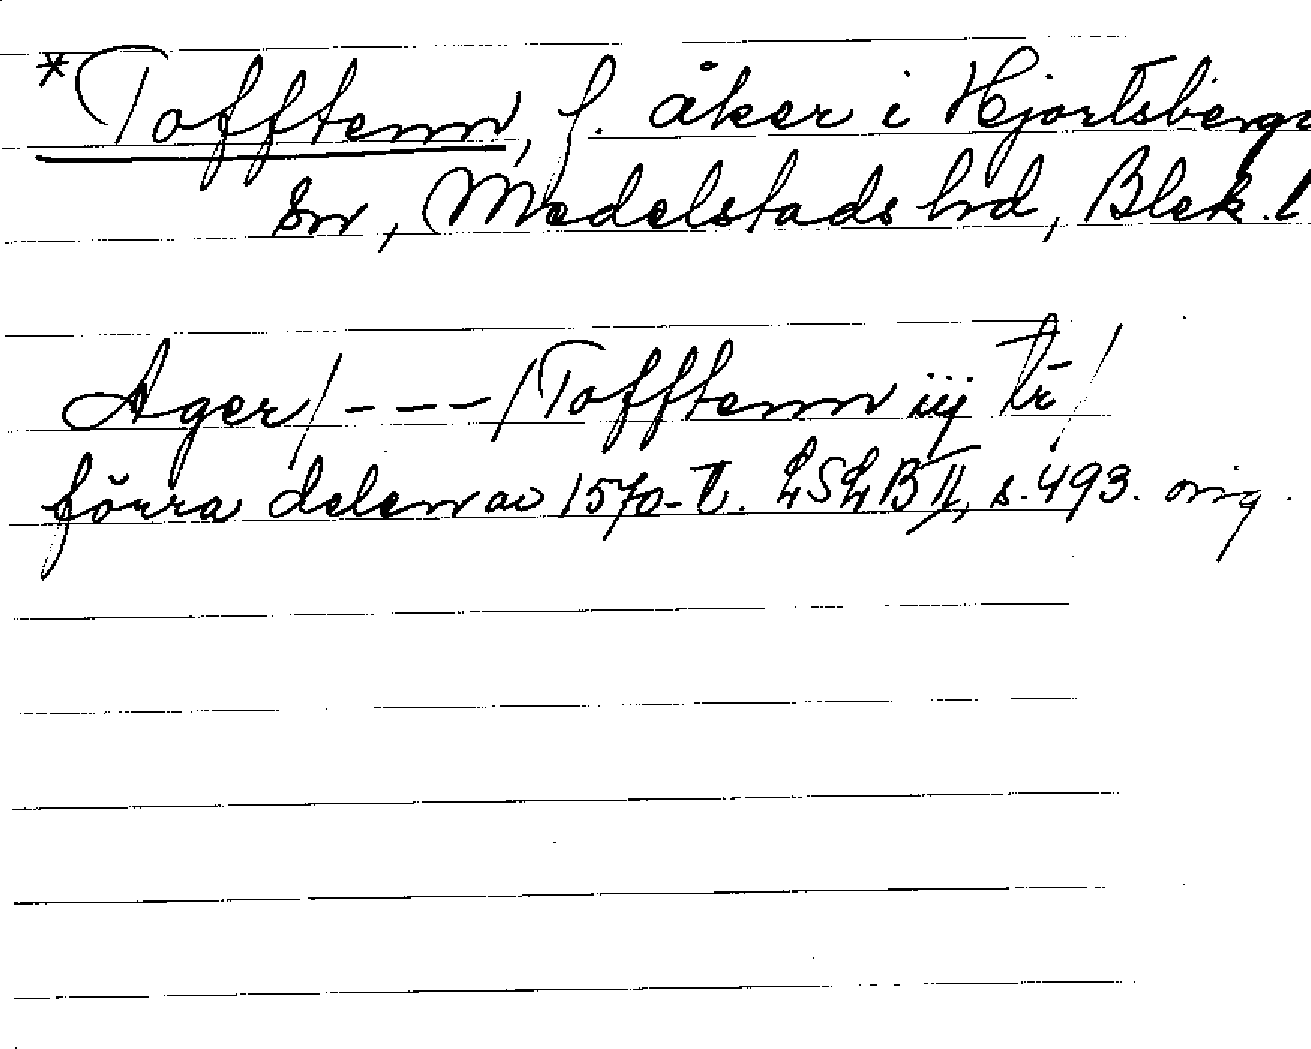 *Tofftenn, f. åker i Hjortsberga
sn, Medelstads hd, Blek. l
Ager/ - - - /Tofftenn iij tr/
förra delen av 1570-t. LSLB II, s. 493. orig.